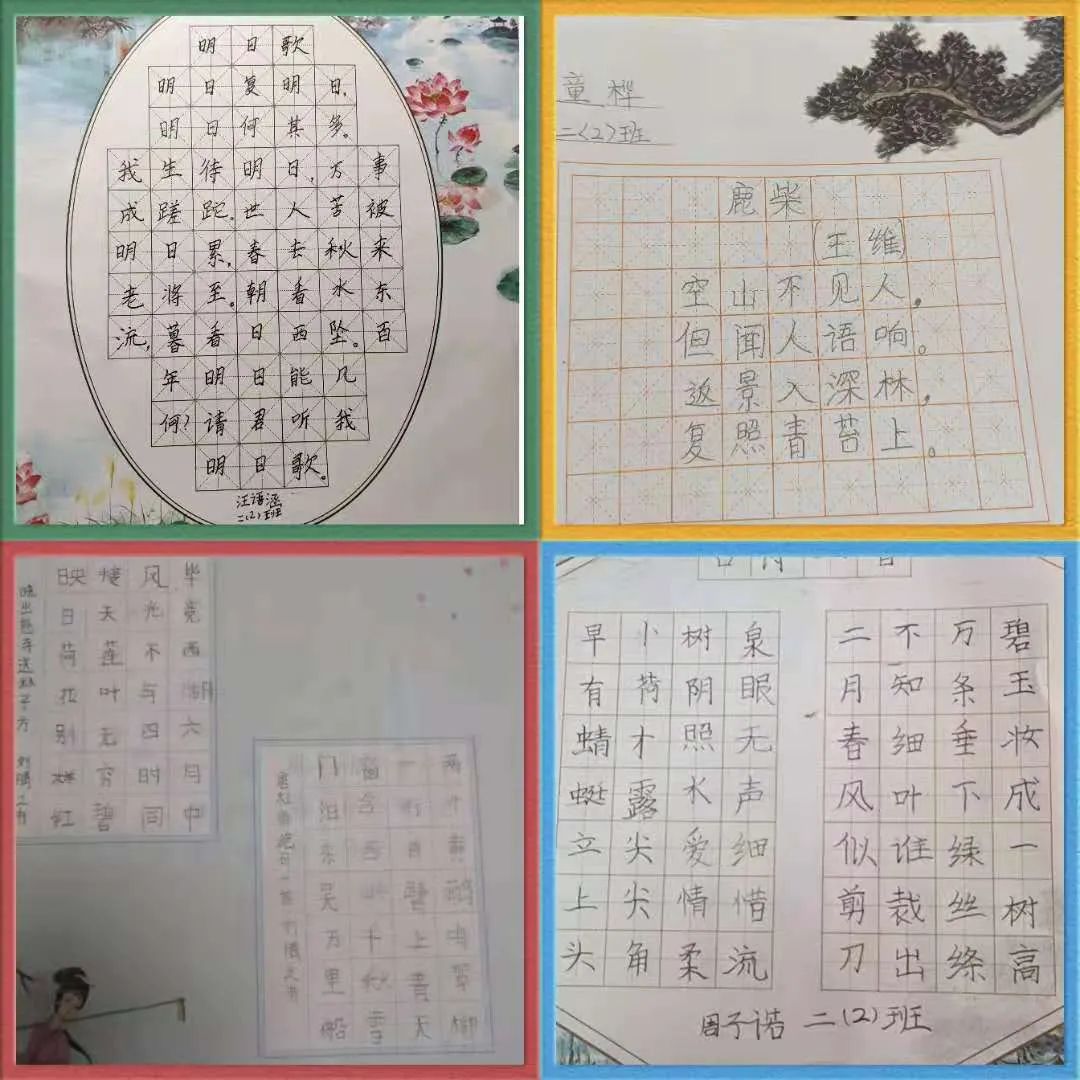 明日歌
明日复明日,
明日何其多。
我生待明日,万事
成蹉跎。世人苦被
明日累,春去秋来
老将至。朝看水东
流,暮看日西坠。百
年明日能几
何?请君听我
明日歌。
汪语涵
二(2)班
童桦
二(2)班
鹿柴
王维
空山不见人,
但闻人语响。
返景入深林,
复照青苔上。
毕竟西湖六月中
风光不与四时同
接天莲叶无穷碧
映日荷花别样红
晓出慈寺送林子方
两个黄鹂鸣翠柳
一行白鹭上青天
窗含西岭千秋雪
门泊东吴万里船
碧玉妆成一树高
万条垂下绿丝绦
不知细叶谁裁出
二月春风似剪刀
泉眼无声细惜流
树阴照水爱情柔
小荷才露尖尖角
早有蜻蜓立上头
周子诺 二(2)班